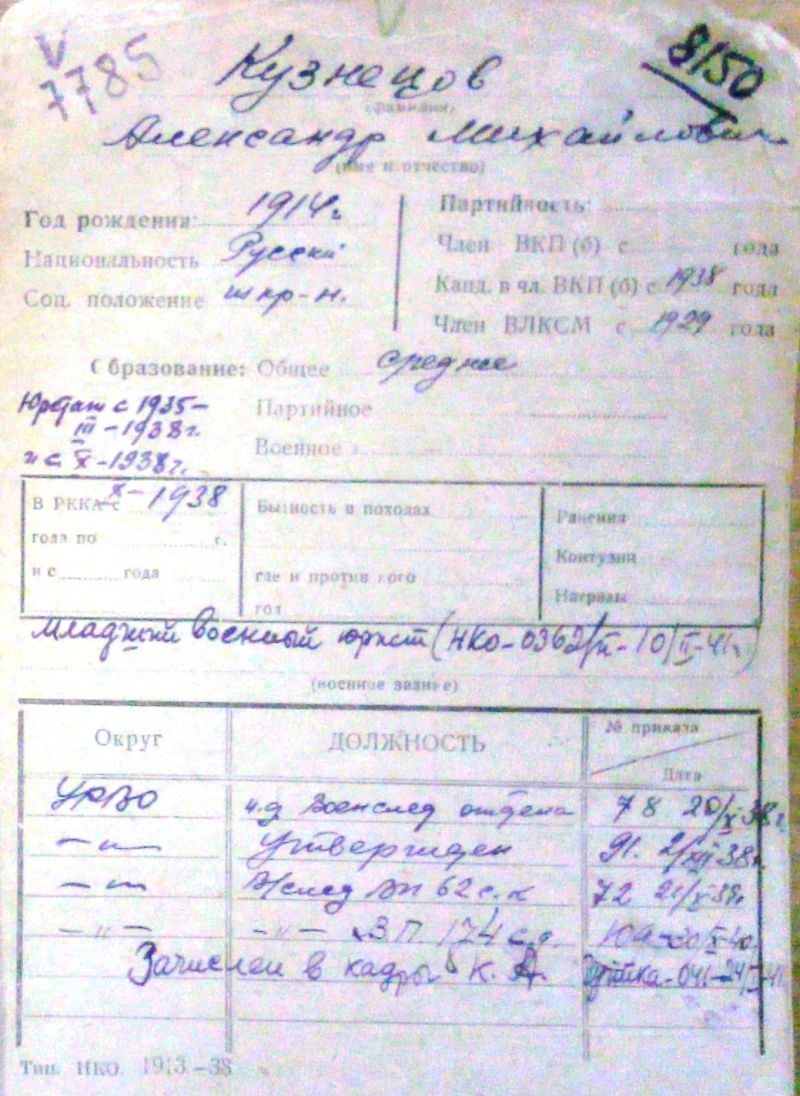 7785
8150
Кузнецов
(фамилия)
Александр Михайлович
(имя и отчество)
Год рождения: 1914 г.
Национальность Русский
Соц. положение
Партийность:
Член ВКП(б) с года
Канд. в чл. ВКП(б) с 1938 года
Член ВЛКСМ с 1929 года
Образование: Общее среднее
Партийное
Военное
с 1935 –
III – 1938 г.
и с X – 1938 г.
В РККА с X – 1938
года по г.
и с года
Бытность в походах
где и против кого
год
Ранения
Контузии
Награды
младший военный юрист (НКО – 0362/п – 10/II – 41 г.)
(военное звание)
Округ ДОЛЖНОСТЬ № приказа
Дата
УрВО и.д. Военслед отдела 78 20/X 38 г.
— " — Утвержден 91. 2/XII 38 г.
— " — В/след ВП 62 с.к 72 21/X 39 г.
— " — — " — В.П. 174 с.д.
Зачислен в кадры К.А.
Тип. НКО. 1913 – 38